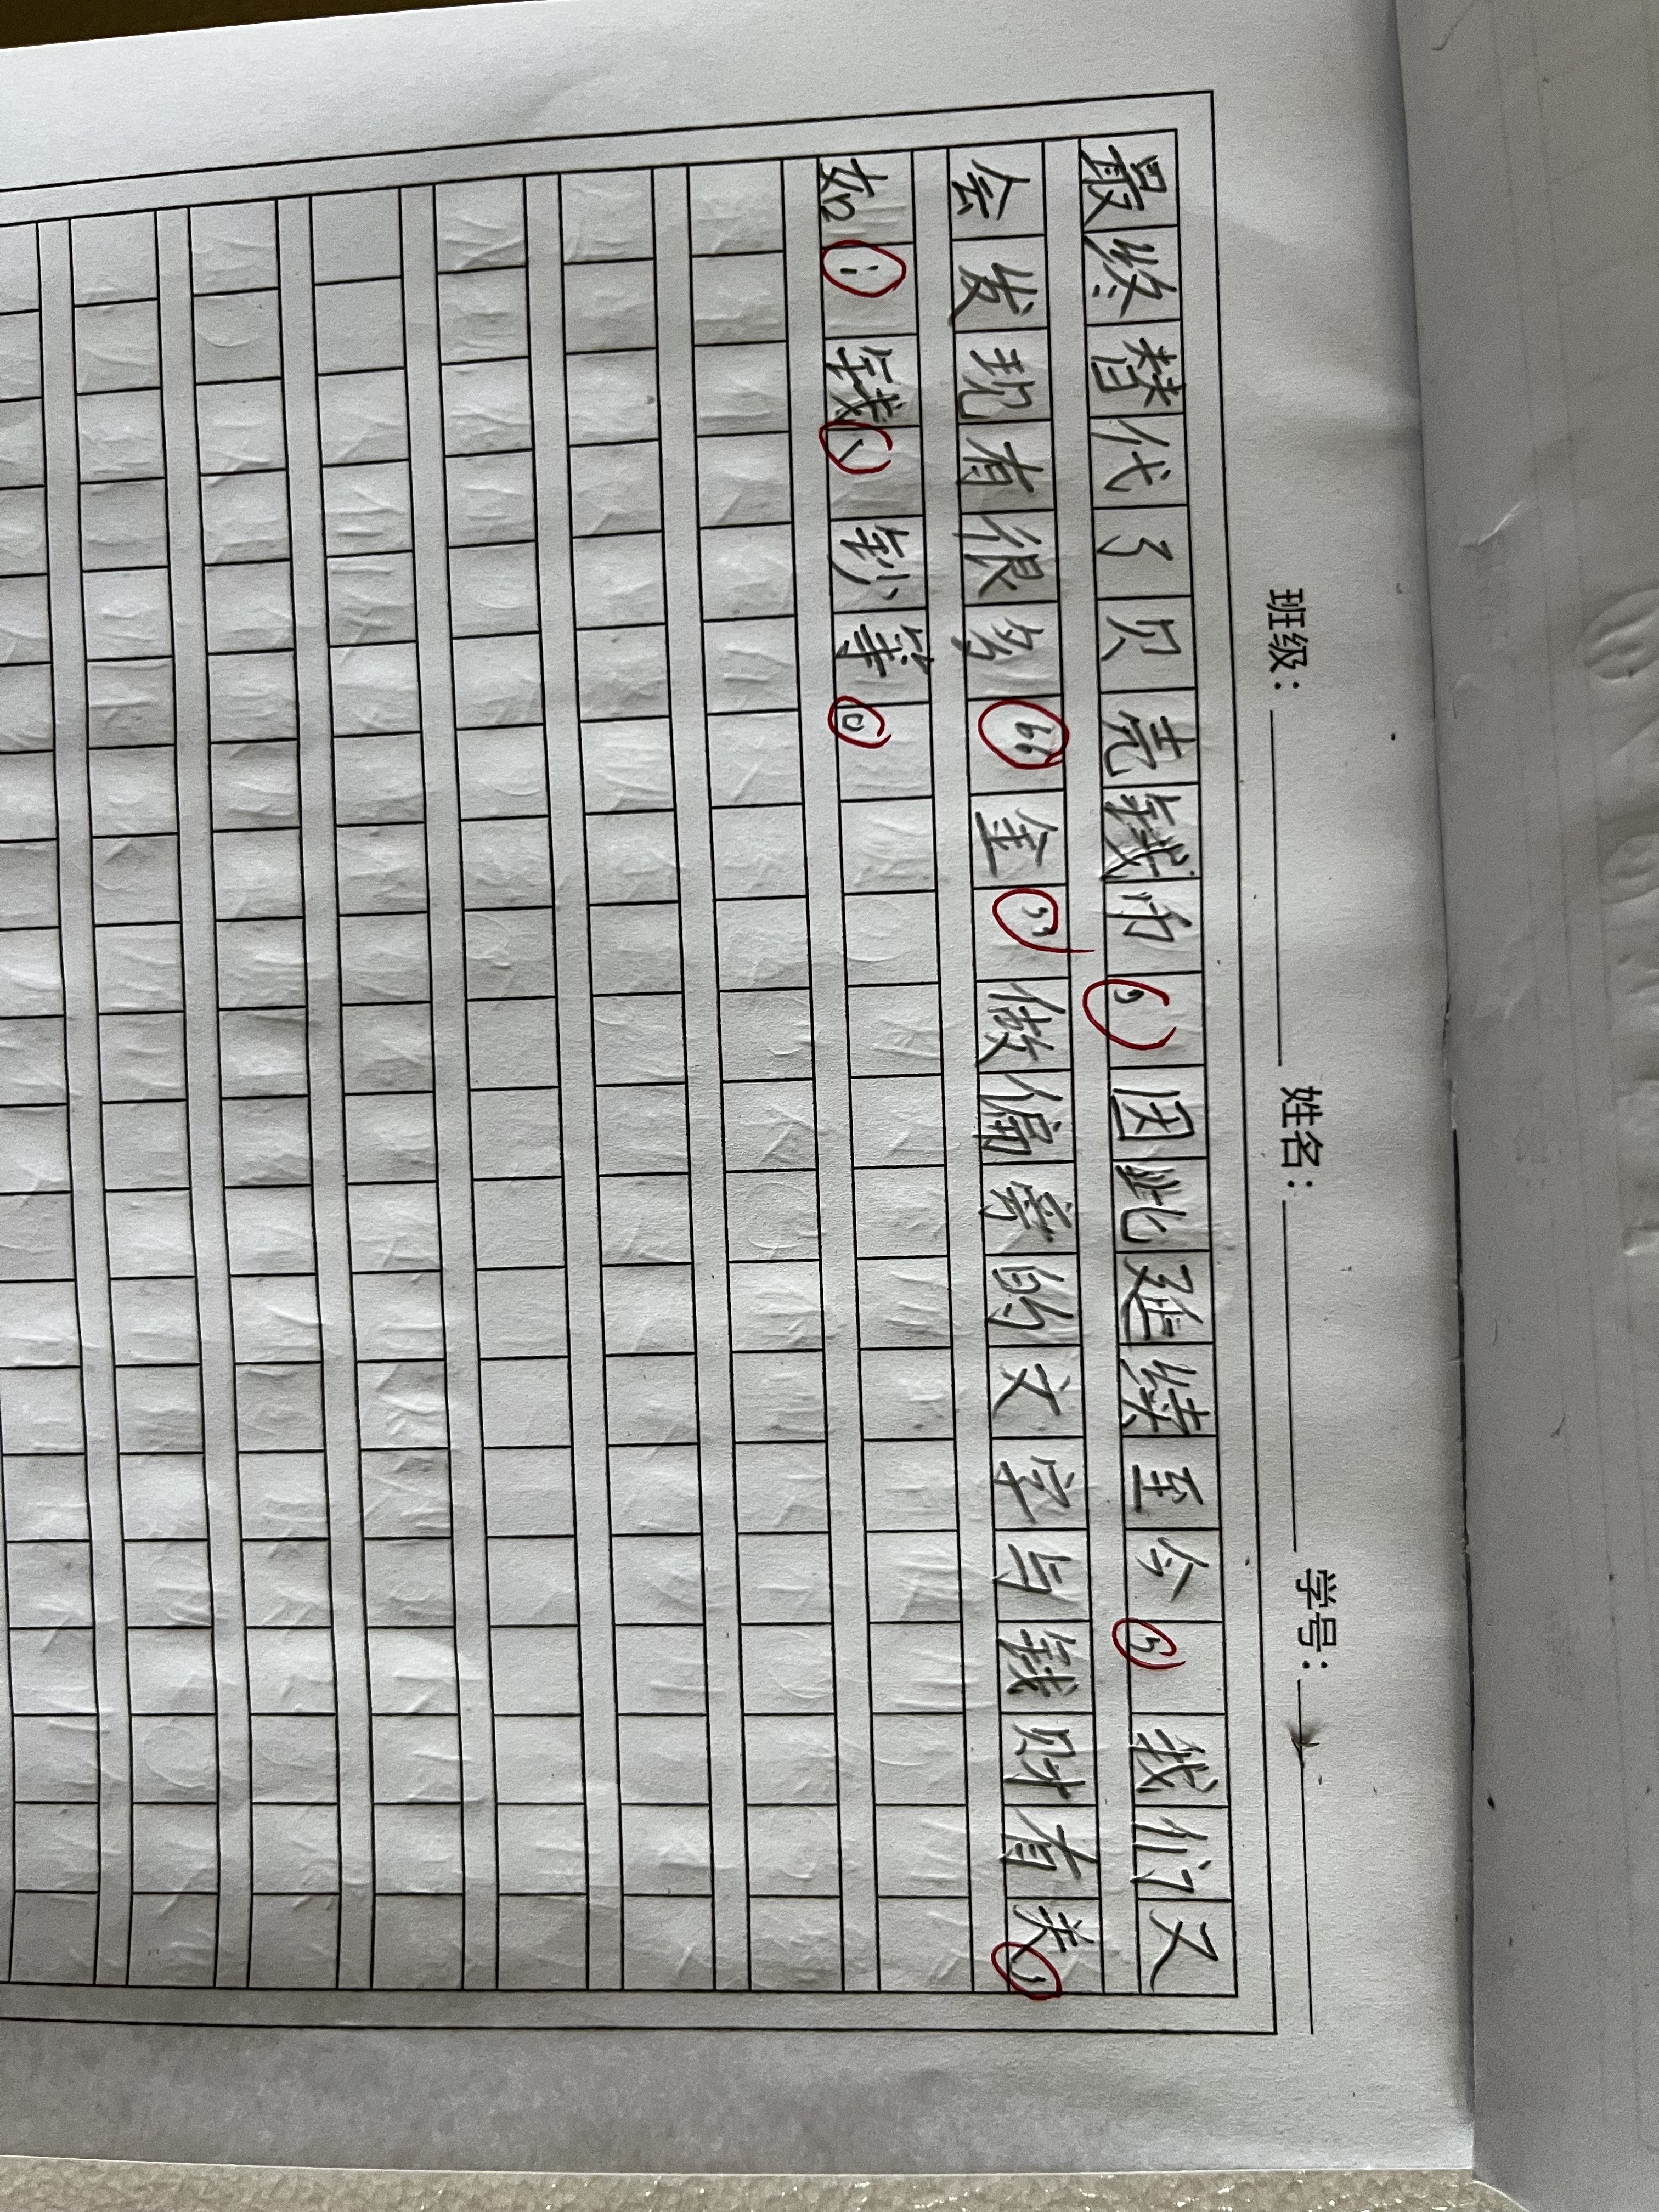 班级： 姓名： 学号：
最终替代了贝壳钱币，因此延续至今，我们又
会发现有很多“金”做偏旁的文字与钱财有关，
如：钱、钞等。